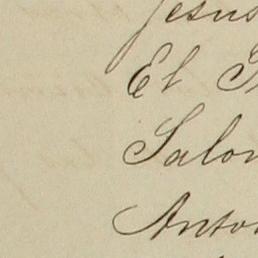 Jesus
El
Salon
Anton